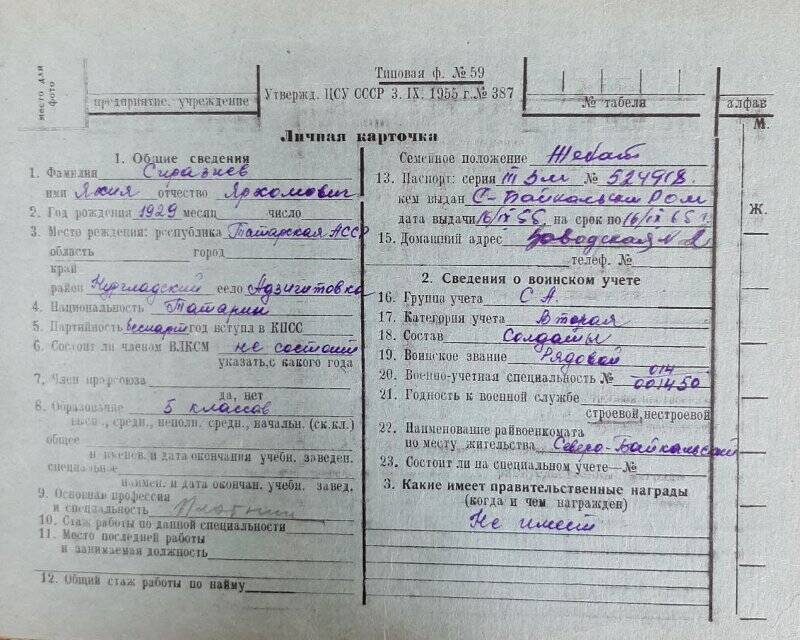 место для фото
предприятие, учреждение
Типовая ф. № 59
Утвержд. ЦСУ СССР 3. IX. 1955 г. № 387
№ табеля
алфав
М.
Ж.
Личная карточка
1. Общие сведения
1. Фамилия Сиразиев
имя Яхия отчество Ярхомович
2. Год рождения 1929 месяц число
3. Место рождения: республика Татарская АССР
область город
край
район село Адзитовка
4. Национальность Татарин
5. Партийность беспарт год вступл в КПСС
6. Состоит ли членом ВЛКСМ не состоит
указать, с какого года
7. Член профсоюза
да, нет
8. Образование 5 классов
высш., средн., неполн. средн., начальн. (ск. кл.)
общее
и наимен. и дата окончания учебн. заведен.
специальное
наимен. и дата окончан. учебн. завед.
9. Основная профессия
и специальность Плотник
10. Стаж работы по данной специальности
11. Место последней работы
и занимаемая должность
12. Общий стаж работы по найму
Семейное положение Женат
13. Паспорт: серии № 524918
кем выдан С-Байкальским РОМ
дата выдачи 16/IX 55 на срок по 16/IX 65 г
15. Домашний адрес Заводская № 2
телеф. №
2. Сведения о воинском учете
16. Группа учета С А.
17. Категория учета Вторая
18. Состав Солдаты
19. Воинское звание Рядовой
20. Военно-учетная специальность № 014
001450
21. Годность к военной службе
строевой, нестроевой
22. Наименование райвоенкомата
по месту жительства Северо-Байкальский
23. Состоит ли на специальном учете—№
3. Какие имеет правительственные награды
(когда и чем награжден)
Не имеет